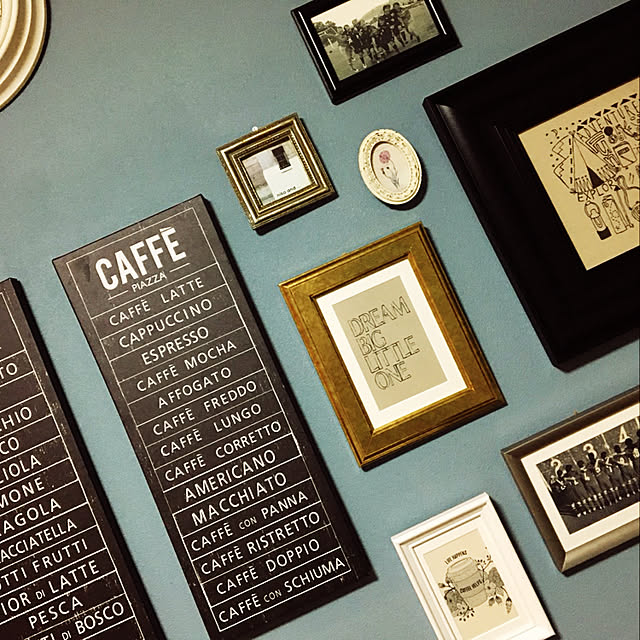 CAFFÈ
PIAZZA
CAFFÈ LATTE
CAPPUCCINO
ESPRESSO
CAFFÈ MOCHA
AFFOGATO
CAFFÈ FREDDO
CAFFÈ LUNGO
CAFFÈ CORRETTO
AMERICANO
MACCHIATO
CAFFÈ CON PANNA
CAFFÈ RISTRETTO
CAFFÈ DOPPIO
CAFFÈ CON SCHIUMA
TO
CHIO
CO
ZIOLA
MONE
AGOLA
ACCIATELLA
TTI FRUTTI
IOR DI LATTE
PESCA
TI DI BOSCO
DREAM
BIG
LITTLE
ONE
EXPLORE
2 3 4
LIFE HAPPENS
COFFEE HELPS